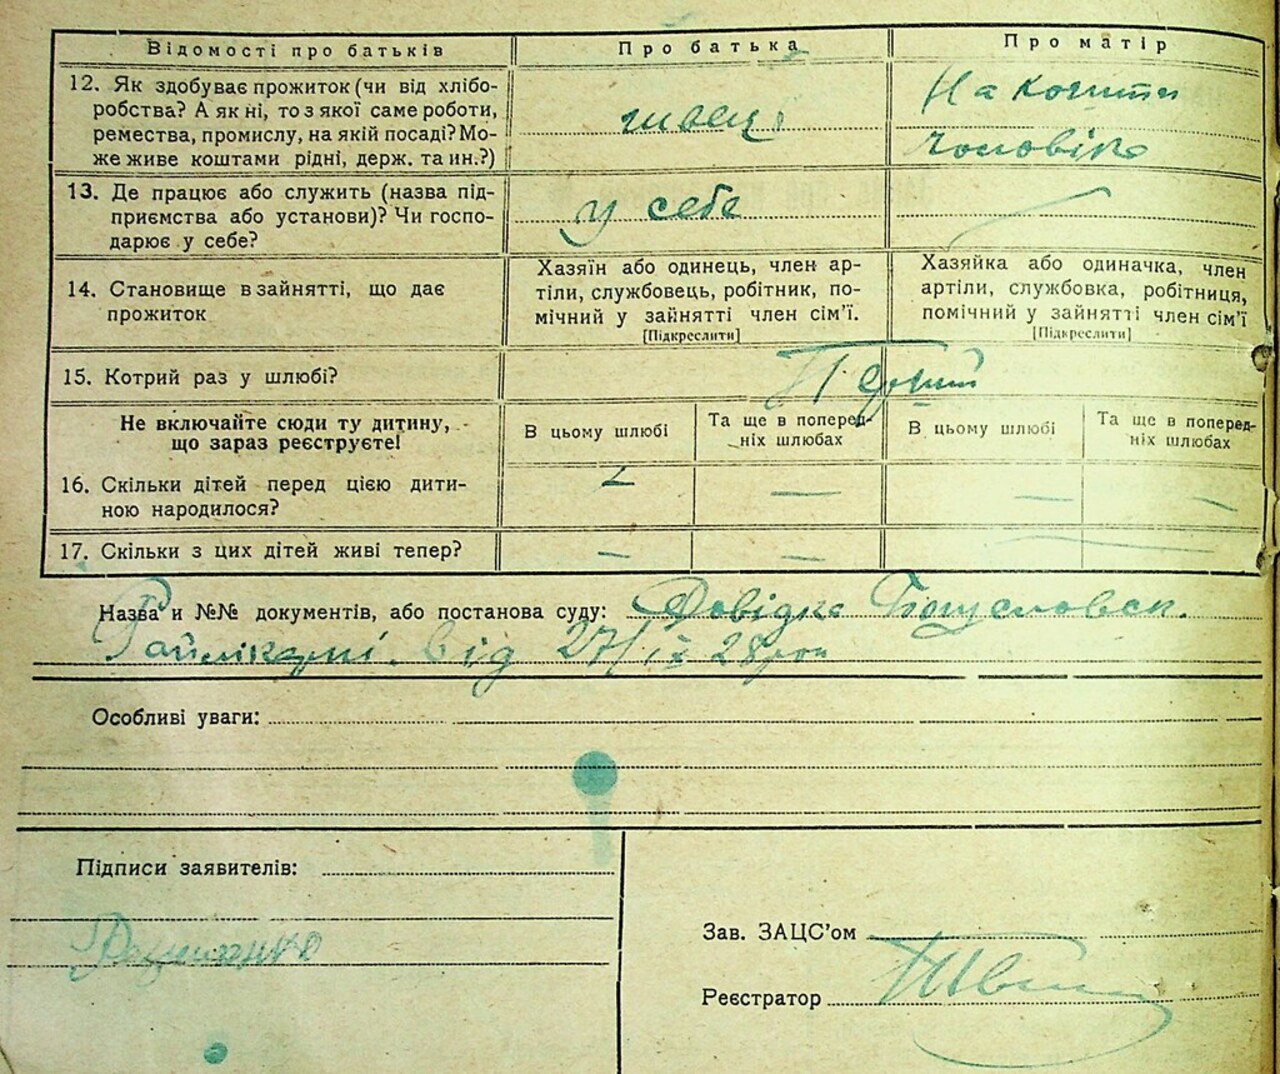 Відомості про батьків
Про батька
Про матір
12. Як здобуває прожиток (чи від хлібо-
робства? А як ні, то з якої саме роботи,
ремества, промислу, на якій посаді? Мо-
же живе коштами рідні, держ. та ин.?)
швець
На кошти
чоловіка
13. Де працює або служить (назва під-
приємства або установи)? Чи госпо-
дарює у себе?
у себе
14. Становище в зайнятті, що дає
прожиток
Хазяїн або одинець, член ар-
тіли, службовець, робітник, по-
мічний у зайнятті член сім’ї.
[Підкреслити]
Хазяйка або одиначка, член
артіли, службовка, робітниця,
помічний у зайнятті член сім’ї
[Підкреслити]
15. Котрий раз у шлюбі?
Перший
Не включайте сюди ту дитину,
що зараз реєструєте!
В цьому шлюбі
Та ще в поперед-
ніх шлюбах
В цьому шлюбі
Та ще в поперед-
ніх шлюбах
16. Скільки дітей перед цією дити-
ною народилося?
— — — —
17. Скільки з цих дітей живі тепер?
— —
Назва и №№ документів, або постанова суду: Довідка Богуславськ.
Райлікарні. від 27/ІХ 28 рок
Особливі уваги:
Підписи заявителів:
Зав. ЗАЦС’ом
Реєстратор